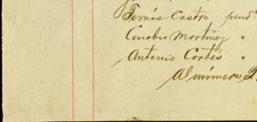 Tomás Castro pend.
Cenobio Martínez "
Antonio Cortés "
Al número 2